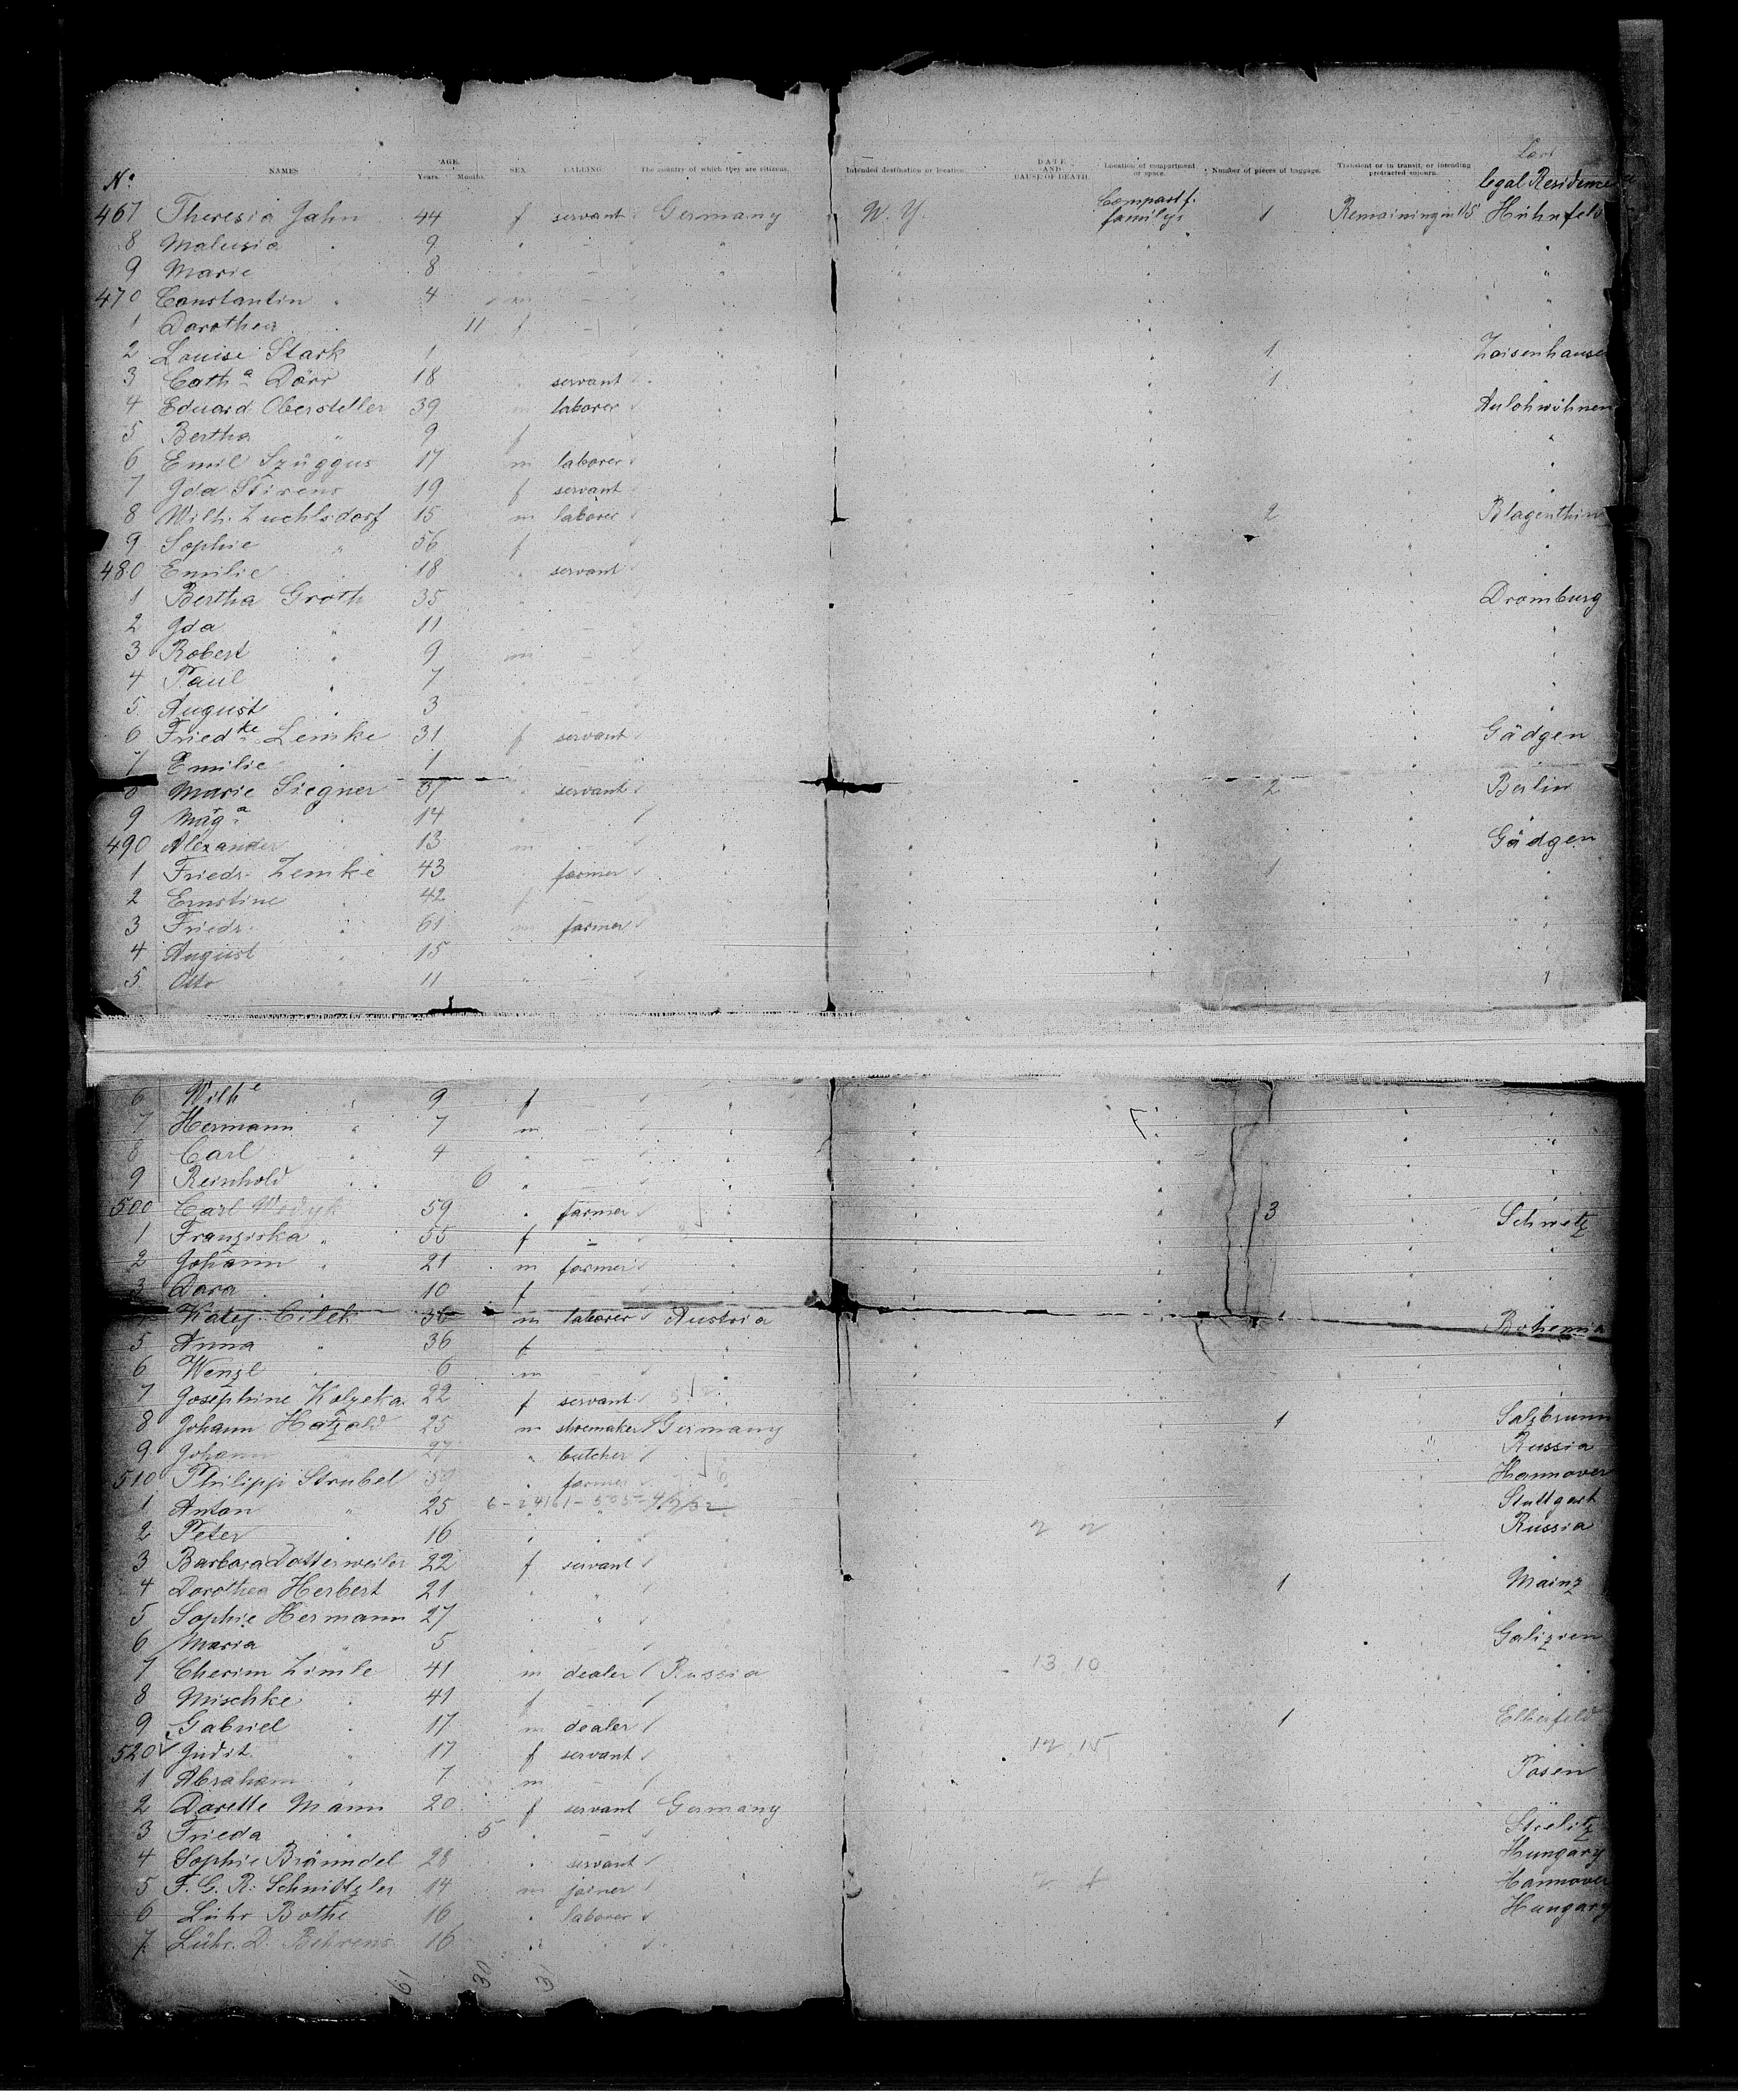 Nº NAMES AGE. Years. Months. SEX. CALLING. The country of which they are citizens. Intended destination or location. DATE AND CAUSE OF DEATH. Location of compartment or space. Number of pieces of baggage. Transient or in transit, or intending protracted sojourn. Last legal Residence
467 Theresia Jahn 44 f servant Germany N. Y. Compart f. familys 1 Remaining in US Hühnfeld
8 Malusia " 9 " — "
9 Marie 8 " — "
470 Constantin " 4 m — "
1 Dorothea 11 f —
2 Louise Stark 1 1 Zaisenhausen
3 Cath.a Dörr 18 " servant 1
4 Eduard Obersteller 39 m laborer Aulohwöhnen
5 Bertha " 9 f "
6 Emil Szüggus 17 m laborer "
7 Ida Stirens 19 f servant "
8 Wilh. Zuchlsdorf 15 m laborer 2 Plagenthin
9 Sophie " 56 f — "
480 Emilie 18 " servant "
1 Bertha Groth 35 — Dromburg
2 Ida " 11 — "
3 Robert " 9 m — "
4 Paul " 7 "
5 August " 3 "
6 Friedke Lemke 31 f servant Gädgen
7 Emilie 1 —
8 Marie Siegner 37 " servant 2 Berlin
9 Marg.a 14 "
490 Alexander 13 m — Gädgen
1 Friedr. Zemke 43 farmer 1
2 Ernstine " 42 f — "
3 Friedr. " 61 m farmer "
4 August " 15 " "
5 Otto " 11 " "
6 Wilhe " 9 f — "
7 Hermann " 7 m — "
8 Carl " 4 " — "
9 Reinhold " 6 " — "
500 Carl 59 " farmer 3 Schwetz
1 Franziska " 55 f — "
2 Johann " 21 m farmer "
3 Dora 10 f —
Cilek 36 m laborer Austria 1 Bohemia
5 Anna " 36 f —
6 Wenzl 6 m — "
7 Josephine Kolzeka 22 f servant
8 Johann Hatzald 25 m shoemaker Germany 1 Salzbrunn
9 Johann 27 " butcher Russia
510 Philipp Strubel farmer Hannover
1 Anton " 25 Stuttgart
2 Peter " 16 Russia
3 Barbara Dotterweiler 22 f servant
4 Dorothea Herbert 21 " " 1 Mainz
5 Sophie Hermann 27 " "
6 Maria " 5 Galizien
7 Cherim Zimle 41 m dealer Russia 13 10
8 Mischke " 41 f —
9 Gabriel " 17 m dealer 1 Elberfeld
520 Judit " 17 f servant 12 15
1 Abraham " 7 m — Posen
2 Dorette Mann 20 f servant Germany
3 Frieda " 5 " — Strelitz
4 Sophie Bründel 28 " servant Hungary
5 F. G. R. Schnittzler 14 m joiner Hannover
6 Lühr Bothe 16 " laborer Hungary
7 Lühr. D. Behrens 16 " "
61 30 31